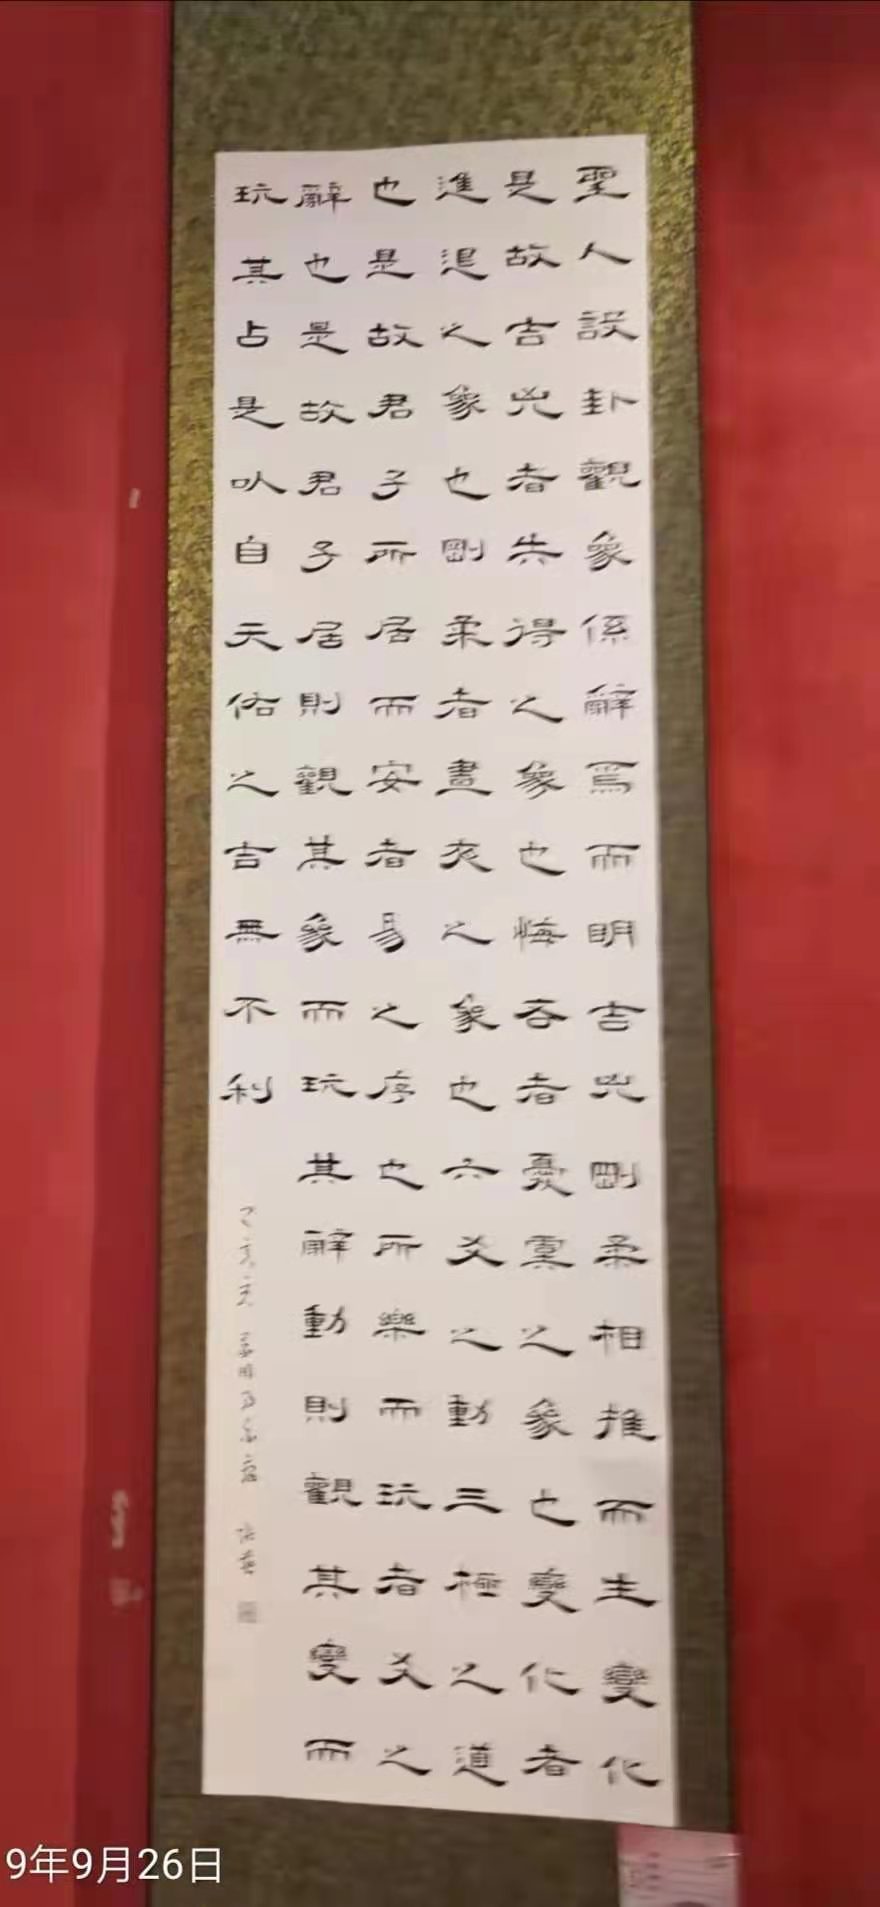 聖人設卦觀象係辭焉而明吉兇剛柔相推而生變化
是故吉兇者失得之象也悔吝者憂虞之象也變化者
進退之象也剛柔者晝夜之象也六爻之動三極之道
也是故君子所居而安者易之序也所樂而玩者爻之
辭也是故君子居則觀其象而玩其辭動則觀其變而
玩其占是以自天佑之吉無不利
9年9月26日